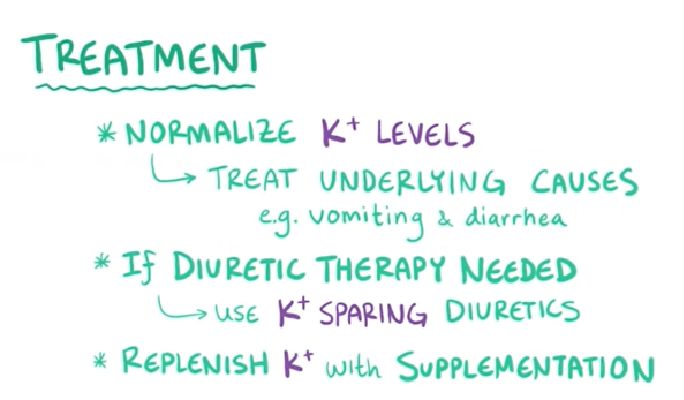 TREATMENT
* NORMALIZE K⁺ LEVELS
↳ TREAT UNDERLYING CAUSES
e.g. vomiting & diarrhea
* If DIURETIC THERAPY NEEDED
↳ USE K⁺ SPARING DIURETICS
* REPLENISH K⁺ with SUPPLEMENTATION